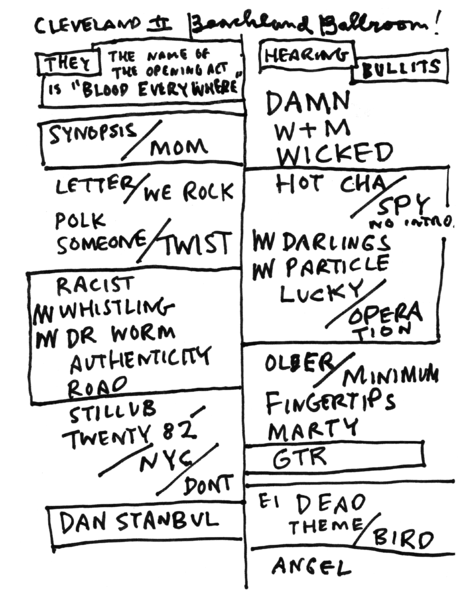 CLEVELAND II Beachland Ballroom!
THEY THE NAME OF
THE OPENING ACT
IS "BLOOD EVERYWHERE"
SYNOPSIS/MOM
LETTER/WE ROCK
POLK
SOMEONE/TWIST
RACIST
WHISTLING
DR WORM
AUTHENTICITY
ROAD
STILLUB
TWENTY 82
/NYC
/DONT
DAN STANBUL
HEARING
BULLITS
DAMN
W+M
WICKED
HOT CHA
/SPY
NO INTRO.
DARLINGS
PARTICLE
LUCKY
/OPERA
TION
OLDER/MINIMUM
FINGERTIPS
MARTY
GTR
E1 DEAD
THEME/BIRD
ANGEL